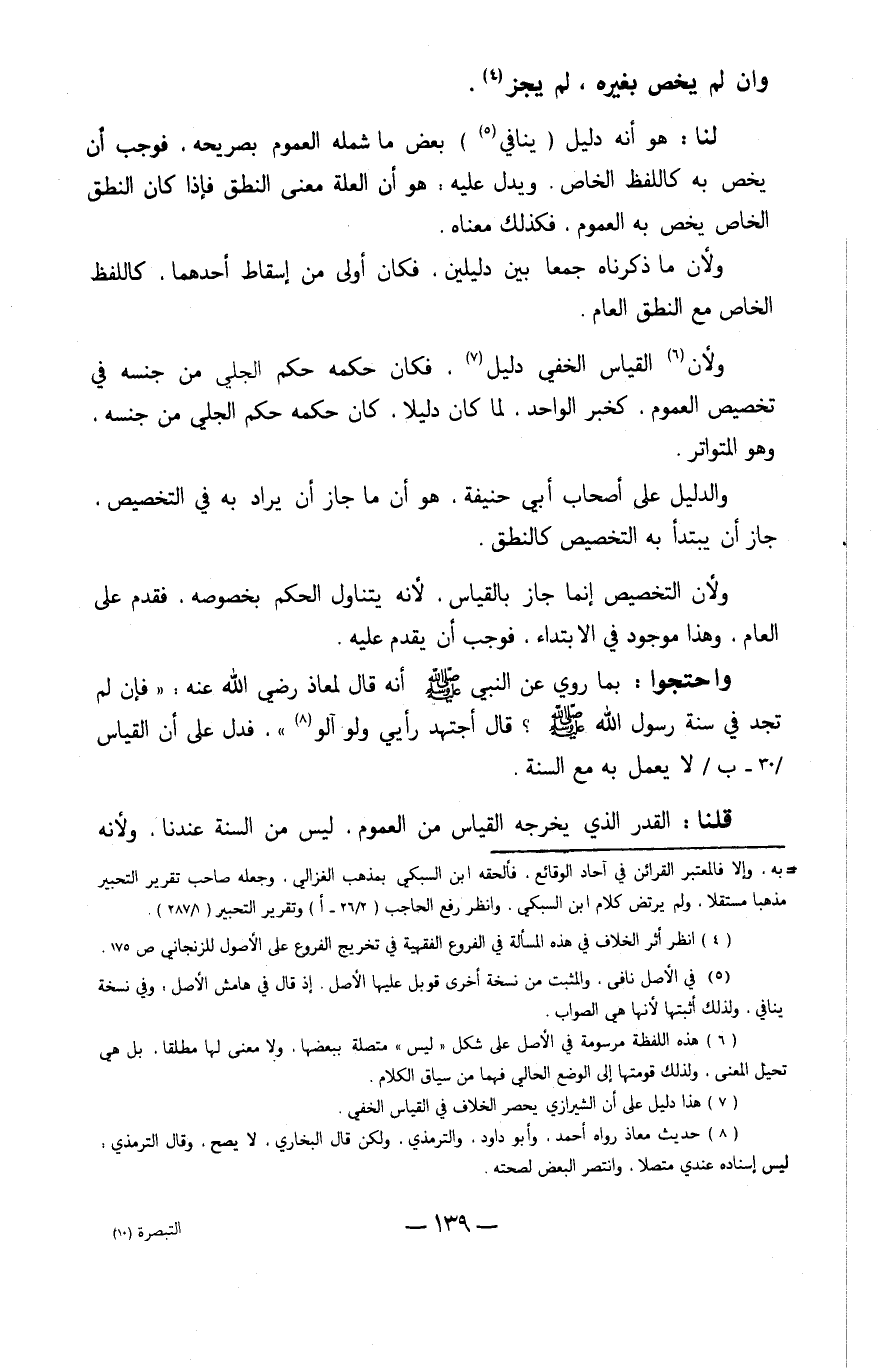 وان لم يخص بغيره ، لم يجز(٤) .
لنا : هو أنه دليل ( ينافي(٥) ) بعض ما شمله العموم بصريحه ، فوجب أن
يخص به كاللفظ الخاص . ويدل عليه : هو أن العلة معنى النطق فإذا كان النطق
الخاص يخص به العموم ، فكذلك معناه .
ولأن ما ذكرناه جمعا بين دليلين ، فكان أولى من إسقاط أحدهما ، كاللفظ
الخاص مع النطق العام .
ولأن(٦) القياس الخفي دليل(٧) ، فكان حكمه حكم الجلي من جنسه في
تخصيص العموم ، كخبر الواحد ، لما كان دليلا ، كان حكمه حكم الجلي من جنسه ،
وهو المتواتر .
والدليل على أصحاب أبي حنيفة ، هو أن ما جاز أن يراد به في التخصيص ،
جاز أن يبتدأ به التخصيص كالنطق .
ولأن التخصيص إنما جاز بالقياس ، لأنه يتناول الحكم بخصوصه ، فقدم على
العام ، وهذا موجود في الابتداء ، فوجب أن يقدم عليه .
واحتجوا : بما روي عن النبي ﷺ أنه قال لمعاذ رضي الله عنه : « فإن لم
تجد في سنة رسول الله ﷺ ؟ قال أجتهد رأيي ولو آلو(٨) » ، فدل على أن القياس
/٣٠ ـ ب / لا يعمل به مع السنة .
قلنا : القدر الذي يخرجه القياس من العموم ، ليس من السنة عندنا ، ولأنه
= به ، وإلا فالمعتبر القرائن في آحاد الوقائع ، فألحقه ابن السبكي بمذهب الغزالي ، وجعله صاحب تقرير التحبير
مذهبا مستقلا ، ولم يرتض كلام ابن السبكي . وانظر رفع الحاجب ( ٢٦/٢ ـ أ ) وتقرير التحبير ( ٢٨٧/١ ) .
( ٤ ) انظر أثر الخلاف في هذه المسألة في الفروع الفقهية في تخريج الفروع على الأصول للزنجاني ص ١٧٥ .
(٥) في الأصل نافى ، والمثبت من نسخة أخرى قوبل عليها الأصل . إذ قال في هامش الأصل : وفي نسخة
ينافي ، ولذلك أثبتها لأنها هي الصواب .
( ٦ ) هذه اللفظة مرسومة في الأصل على شكل « ليس » متصلة ببعضها ، ولا معنى لها مطلقا ، بل هي
تحيل المعنى ، ولذلك قومتها إلى الوضع الحالي فهما من سياق الكلام .
( ٧ ) هذا دليل على أن الشيرازي يحصر الخلاف في القياس الخفي .
( ٨ ) حديث معاذ رواه أحمد ، وأبو داود ، والترمذي ، ولكن قال البخاري ، لا يصح ، وقال الترمذي :
ليس إسناده عندي متصلا ، وانتصر البعض لصحته .
ـ ١٣٩ ـ
التبصرة (١٠)